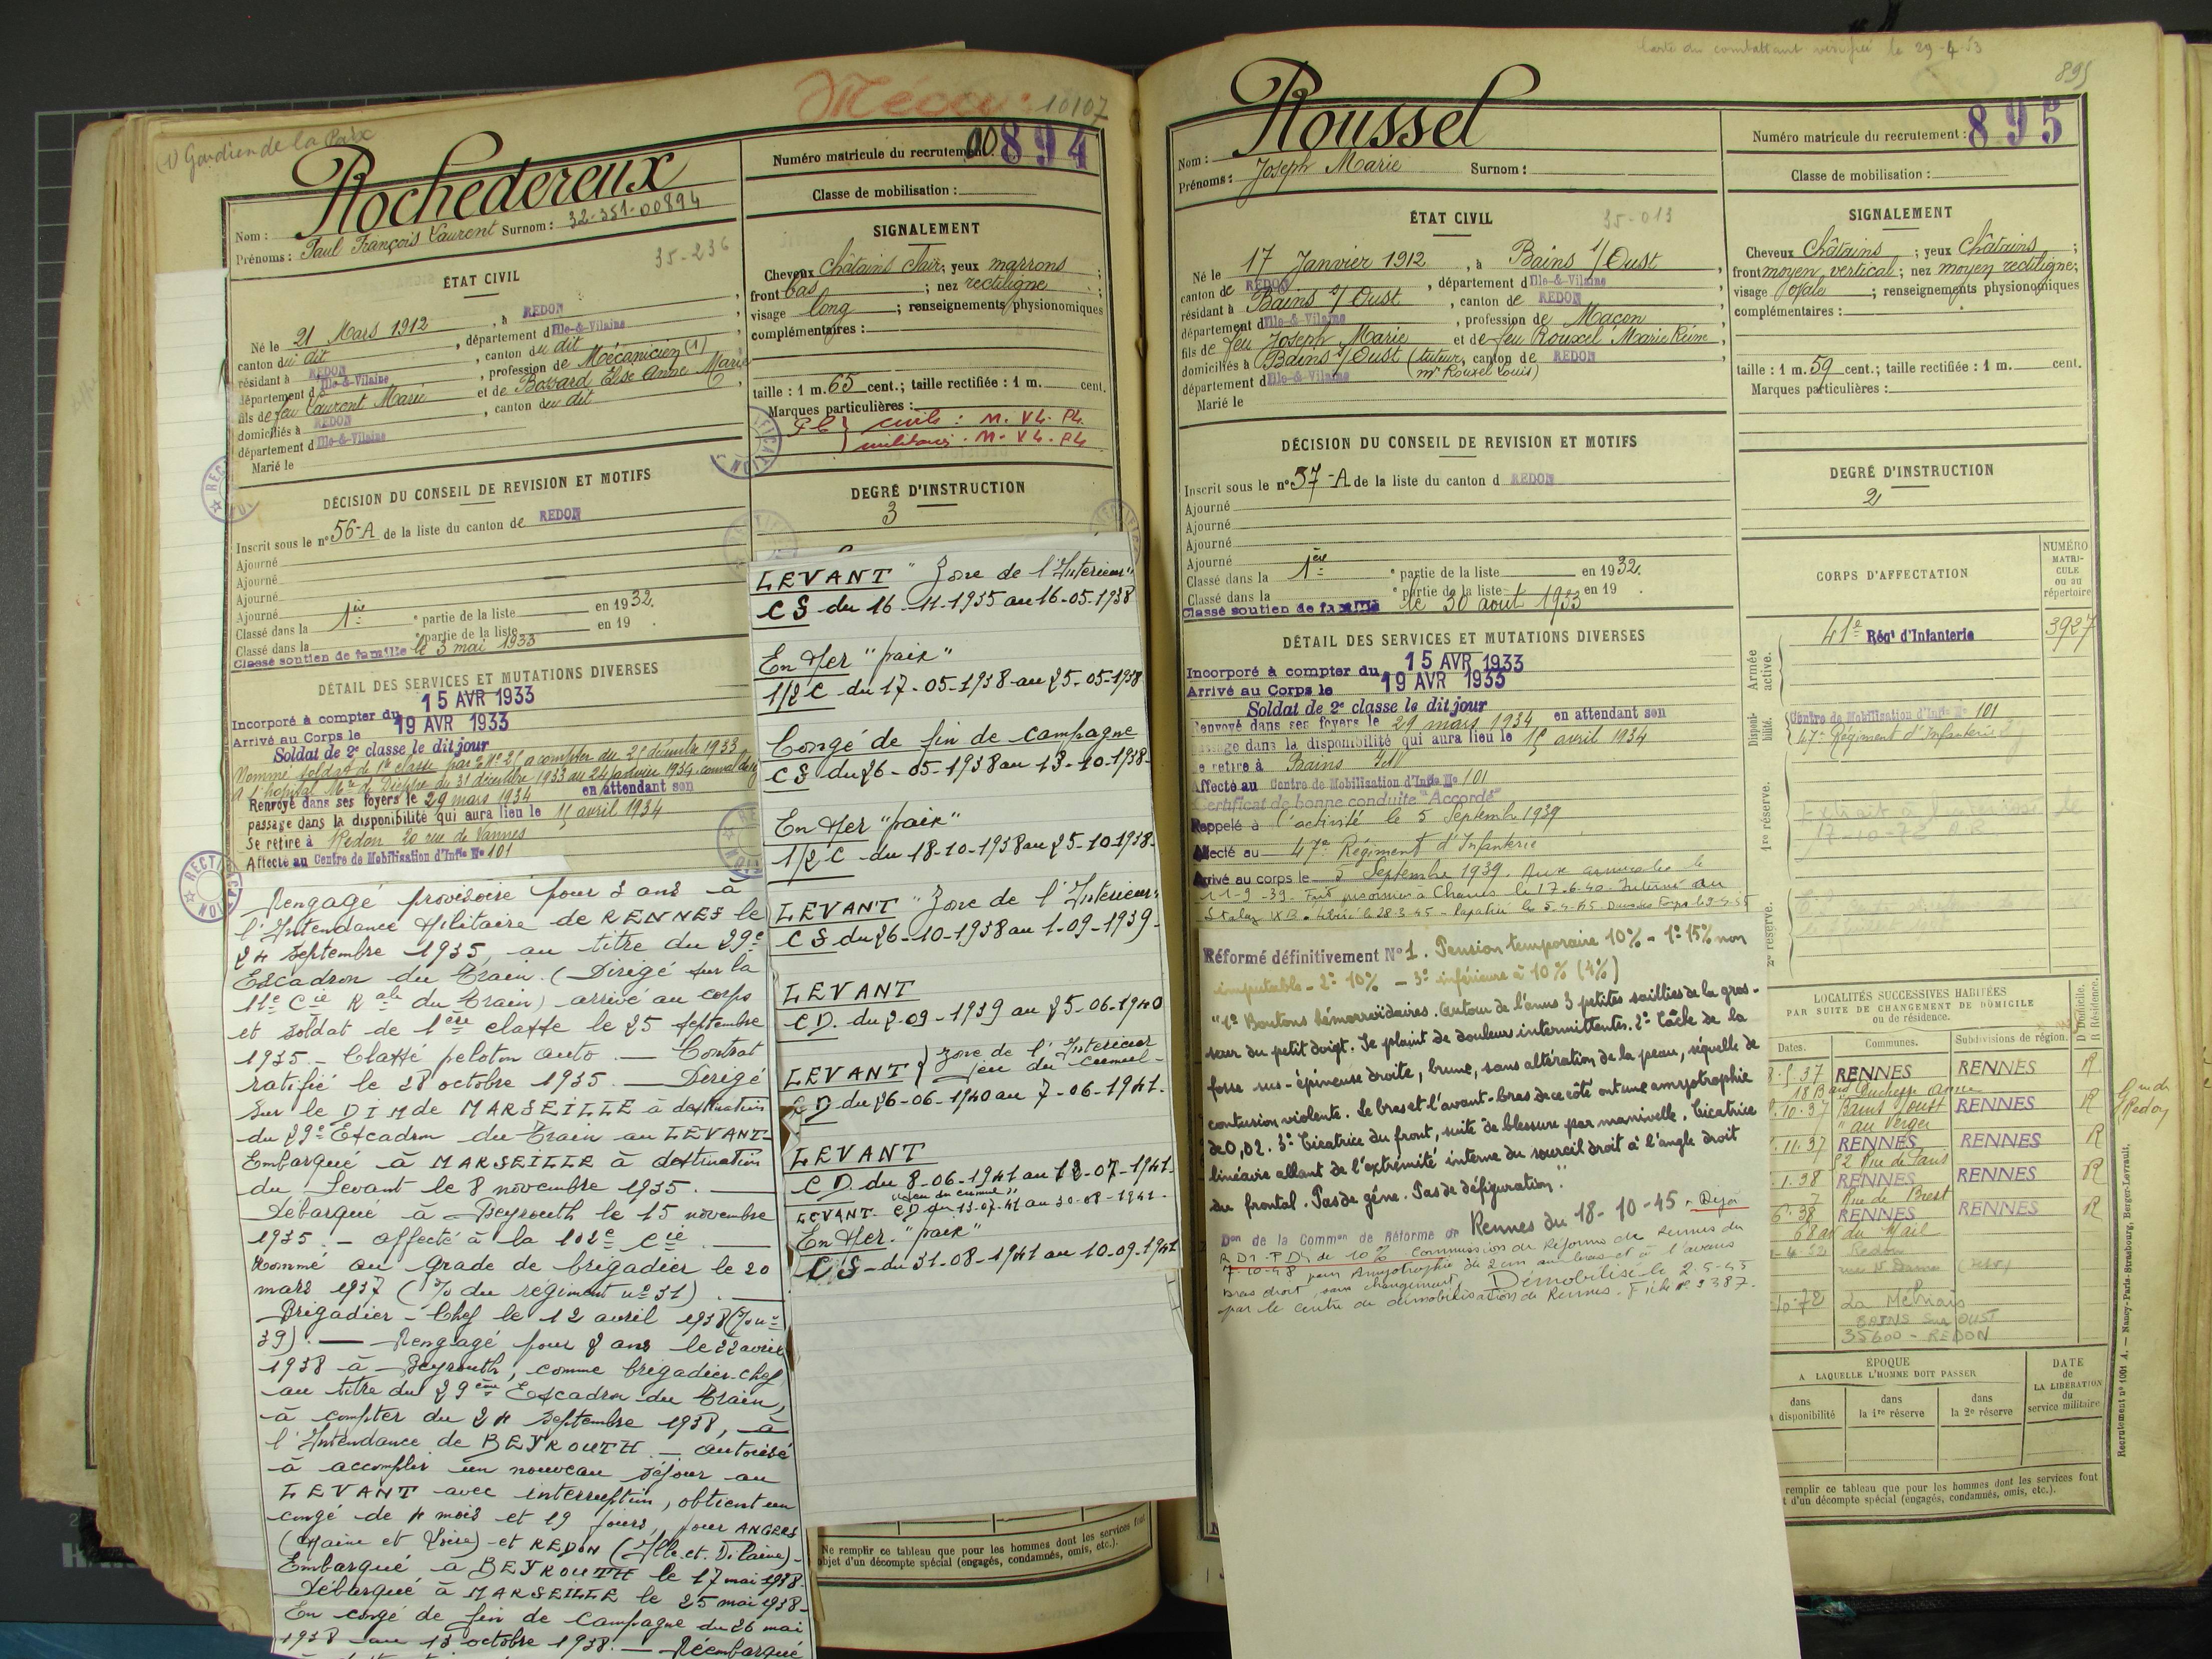 Méca
10107
(1) Gardien de la Paix
Rochedereux
Nom :
Prénoms : Paul François Laurent Surnom : 32-351-00894
35-236
ÉTAT CIVIL
Né le 21 Mars 1912, à REDON,
canton du dit, département d'Ille-&-Vilaine,
résidant à REDON, canton du dit,
département d'Ille-&-Vilaine, profession de Mécanicien (1)
fils de feu Laurent Marie et de Bossard Élise Anne Marie
domiciliés à REDON, canton du dit,
département d'Ille-&-Vilaine
Marié le
DÉCISION DU CONSEIL DE REVISION ET MOTIFS
Inscrit sous le n° 56-A de la liste du canton de REDON
Ajourné
Ajourné
Ajourné
Ajourné
Classé dans la 1ère partie de la liste en 1932.
Classé dans la e partie de la liste en 19 .
Classé soutien de famille le 3 mai 1933
DÉTAIL DES SERVICES ET MUTATIONS DIVERSES
Incorporé à compter du 15 AVR 1933
Arrivé au Corps le 19 AVR 1933
Soldat de 2e classe le dit jour
Nommé soldat de 1e classe à compter du 21 décembre 1933
A l'hôpital du 31 décembre 1933 au 24 janvier 1934
Renvoyé dans ses foyers le 29 mars 1934 en attendant son
passage dans la disponibilité qui aura lieu le 15 avril 1934
Se retire à Redon 20 rue de Vannes
Affecté au Centre de Mobilisation d'Inf'ie No 101
Rengagé provisoire pour 3 ans à
l'Intendance Militaire de RENNES le
24 septembre 1935, au titre du 29e
Escadron du Train. (Dirigé sur la
11e Cie Rale du Train) arrivé au corps
et soldat de 1ère classe le 25 septembre
1935. - Classé peloton auto. - Contrat
ratifié le 28 octobre 1935. - Dirigé
sur le DIM de MARSEILLE à destination
du 29e Escadron du Train au LEVANT-
Embarqué à MARSEILLE à destination
du Levant le 8 novembre 1935. -
Débarqué à Beyrouth le 15 novembre
1935. - affecté à la 102e Cie
Nommé au grade de brigadier le 20
mars 1937 (O/ du régiment n° 31). -
Brigadier-Chef le 12 avril 1938 (
39). - Rengagé pour 2 ans le 22 avril
1938 à Beyrouth, comme brigadier-chef
au titre du 29ème Escadron du Train,
à compter du 24 septembre 1938, à
l'Intendance de BEYROUTH - autorisé
à accomplir un nouveau séjour au
LEVANT avec interruption, obtient un
congé de 4 mois et 19 jours, pour ANGERS
(Maine et Loire) et REDON (Ille-et-Vilaine) -
Embarqué à BEYROUTH le 17 mai 1938-
Débarqué à MARSEILLE le 25 mai 1938-
En congé de fin de Campagne du 26 mai
1938 au 13 octobre 1938. - Réembarqué
Numéro matricule du recrutement : 00894
Classe de mobilisation :
SIGNALEMENT
Cheveux Châtains clair; yeux marrons ;
front bas ; nez rectiligne ;
visage long ; renseignements physionomiques
complémentaires :
taille : 1 m. 65 cent.; taille rectifiée : 1 m. cent.
Marques particulières :
P.C } civils : M. VL. PL.
militaires. M. VL. PL
DEGRÉ D'INSTRUCTION
3
LEVANT "Zone de l'Intérieur"
CS du 16-11-1935 au 16-05-1938
En Mer "paix"
1/2 C du 17-05-1938 au 25-05-1938
Congé de fin de campagne
CS du 26-05-1938 au 13-10-1938-
En Mer "paix"
1/2 C du 18-10-1938 au 25-10-1938-
LEVANT "Zone de l'Intérieur"
CS du 26-10-1938 au 1-09-1939-
LEVANT
CD. du 2-09-1939 au 25-06-1940
LEVANT { Zone de l'Intérieur
jeu du cumul-
CD du 26-06-1940 au 7-06-1941.
LEVANT
CD. du 8-06-1941 au 12-07-1941-
"jeu du cumul"
LEVANT- CD du 13-07-41 au 30-08-1941-
En Mer. "paix"
CS - du 31-08-1941 au 10-09-1941
Ne remplir ce tableau que pour les hommes dont les services font
objet d'un décompte spécial (engagés, condamnés, omis, etc.).
Carte du combattant vérifiée le 29-4-53
895
Roussel
Nom :
Prénoms : Joseph Marie Surnom :
ÉTAT CIVIL
35-013
Né le 17 Janvier 1912, à Bains s/ Oust,
canton de REDON, département d'Ille-&-Vilaine,
résidant à Bains s/ Oust, canton de REDON,
département d'Ille-&-Vilaine, profession de Maçon,
fils de feu Joseph Marie et de feu Rouxel Marie Reine,
domiciliés à Bains s/ Oust (tuteur, canton de REDON
département d'Ille-&-Vilaine (mr Rouxel Louis)
Marié le
DÉCISION DU CONSEIL DE REVISION ET MOTIFS
Inscrit sous le n° 57-A de la liste du canton d REDON
Ajourné
Ajourné
Ajourné
Ajourné
Classé dans la 1ère partie de la liste en 1932.
Classé dans la e partie de la liste en 19 .
Classé soutien de famille le 30 août 1933
DÉTAIL DES SERVICES ET MUTATIONS DIVERSES
Incorporé à compter du 15 AVR 1933
Arrivé au Corps le 19 AVR 1933
Soldat de 2e classe le dit jour
Renvoyé dans ses foyers le 29 mars 1934 en attendant son
passage dans la disponibilité qui aura lieu le 15 avril 1934
Se retire à Bains
Affecté au Centre de Mobilisation d'Inf'ie No 101
Certificat de bonne conduite "Accordé"
Rappelé à l'activité le 5 Septembre 1939
Affecté au 47e Régiment d'Infanterie
Arrivé au corps le 5 Septembre 1939. Aux armées le
11-9-39. Fait prisonnier à Charmes le 17.6.40. Interné au
Stalag XB. Libéré le 28.3.45 - Rapatrié le 5-4-45.
Réformé définitivement No 1. Pension temporaire 10% - 1° 15% non
imputable - 2° 10% - 3° inférieure à 10% (4%)
"1° Boutons hémorroïdaires. Autour de l'anus 3 petites saillies de la gros-
seur du petit doigt. Se plaint de douleurs intermittentes. 2° Tâche de la
fosse sus-épineuse droite, brune, sans altération de la peau, séquelle de
contusion violente. Le bras et l'avant-bras de ce côté ont une amyotrophie
de 0,02. 3° Cicatrice du front, suite de blessure par manivelle. Cicatrice
linéaire allant de l'extrémité interne du sourcil droit à l'angle droit
du frontal. Pas de gêne. Pas de défiguration."
Don de la Common de Réforme de Rennes du 18-10-45.
P.D. de 10% Commission de Réforme de Rennes du
7-10-48 pour Amyotrophie de 2 cm au bras et à l'avant
bras droit, sans changement. Démobilisé le 2-5-45
par le centre de démobilisation de Rennes. Fiche n° 9387.
Numéro matricule du recrutement : 895
Classe de mobilisation :
SIGNALEMENT
Cheveux Châtains ; yeux Châtains ;
front moyen vertical ; nez moyen rectiligne ;
visage ovale ; renseignements physionomiques
complémentaires :
taille : 1 m. 59 cent.; taille rectifiée : 1 m. cent.
Marques particulières :
DEGRÉ D'INSTRUCTION
2
CORPS D'AFFECTATION
NUMÉRO
MATRI-
CULE
ou au
répertoire
Armée active.
41e Régt d'Infanterie 3927
Disponi-bilité.
Centre de Mobilisation d'Inf'ie No 101
47e Régiment d'Infanterie
1re réserve.
17-10-72
2e réserve.
LOCALITÉS SUCCESSIVES HABITÉES
PAR SUITE DE CHANGEMENT DE DOMICILE
ou de résidence.
Dates. Communes. Subdivisions de région. D Domicile. R Résidence.
8-5-37 RENNES RENNES R
18 Duchesse Anne
.10.37 Bains s/oust RENNES R Gend. Redon
au Verger
.11.37 RENNES RENNES R
52 Rue de Paris
.1.38 RENNES RENNES R
7 Rue de Brest
6.38 RENNES RENNES R
68 av du Mail
Redon
-10-72 La Metrais
BAINS sur OUST
35600 - REDON
ÉPOQUE
A LAQUELLE L'HOMME DOIT PASSER
DATE
de
LA LIBÉRATION
du
service militaire
dans
la disponibilité
dans
la 1re réserve
dans
la 2e réserve
remplir ce tableau que pour les hommes dont les services font
t d'un décompte spécial (engagés, condamnés, omis, etc.).
Recrutement n° 1001 A. — Nancy-Paris-Strasbourg, Berger-Levrault.